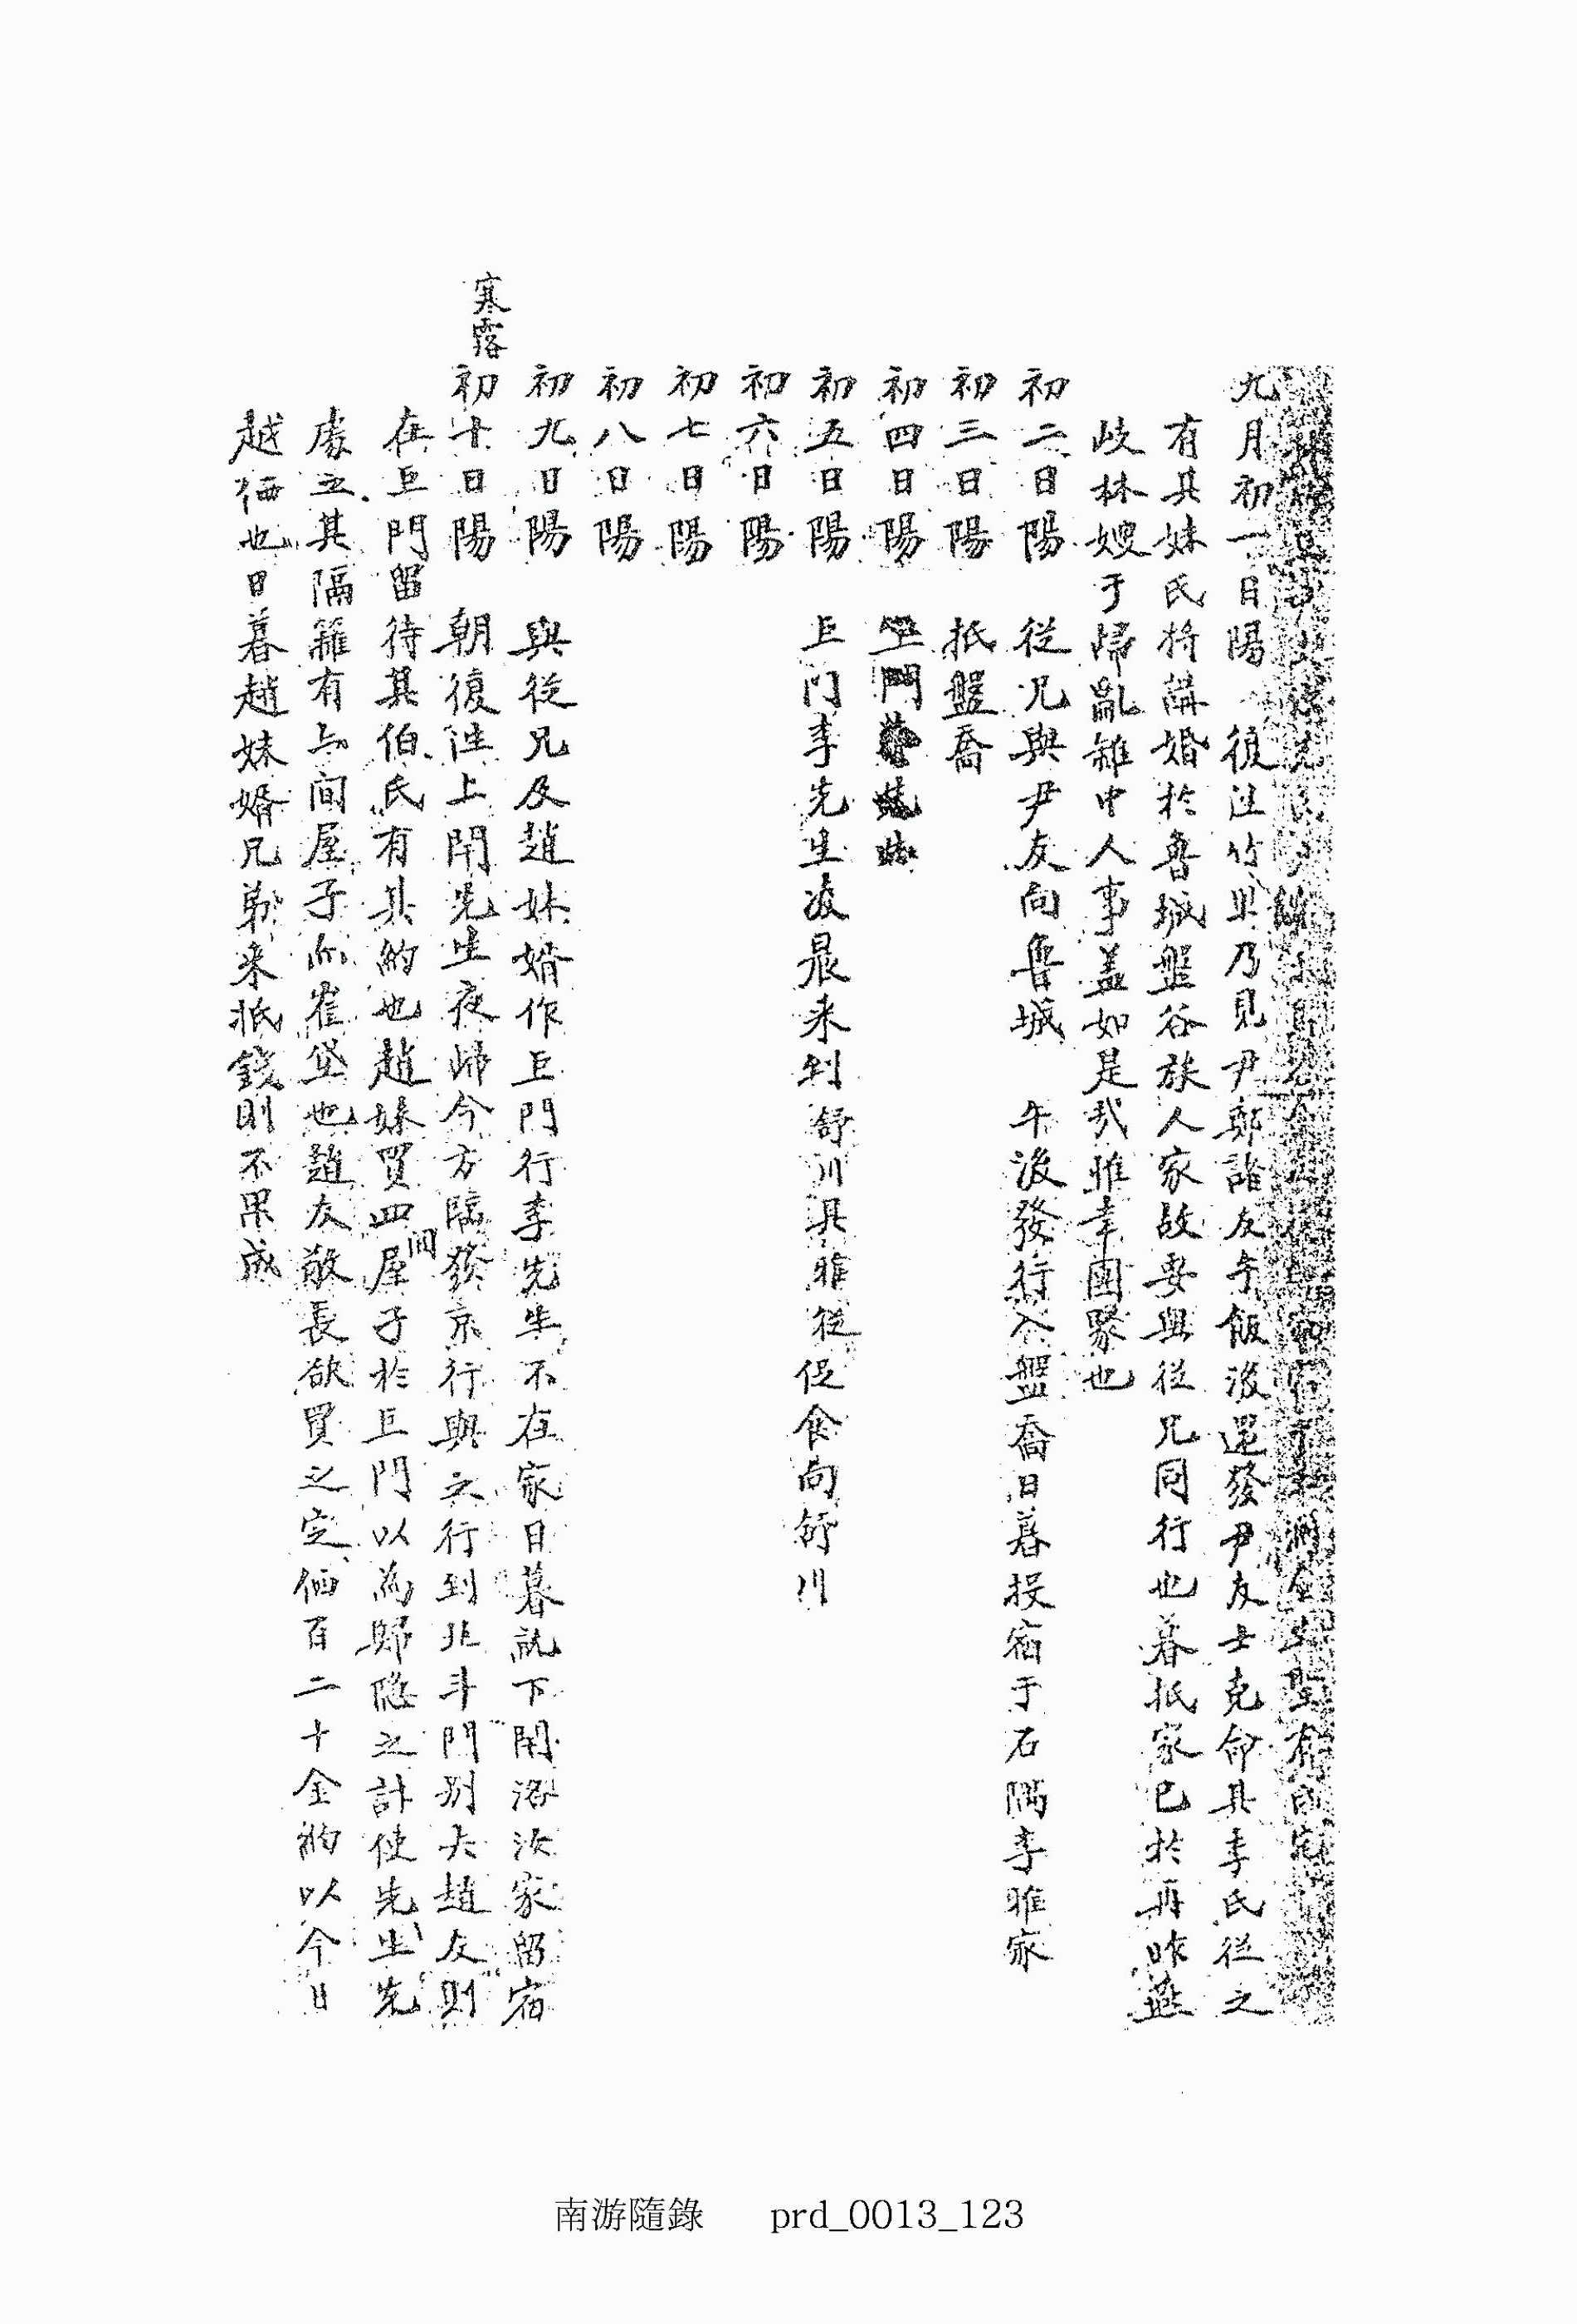 九月初一日陽 復往竹里乃見尹鄭諸友午飯後還發尹友士克命具李氏從之
有其妹氏將講婚於魯城盤谷族人家故要與從兄同行也暮抵家已於再昨燕
岐林嫂于歸亂離中人事盖如是我雖幸團聚也
初二日陽 從兄與尹友向魯城 午後發行入盤喬日暮投宿于石隅李雅家
初三日陽 抵盤喬
初四日陽
初五日陽 巨门李先生凌晨来到舒川具雅從促食向舒川
初六日陽
初七日陽
初八日陽
初九日陽 與從兄及趙妹婿作巨門行李先生不在家日暮訪下開洛汝家留宿
寒露
初十日陽 朝復往上開先生夜歸今方臨發京行與之行到北斗門別去趙友則
在巨門留待其伯氏有其約也趙妹買四間屋子於巨門以為歸隱之計使先生先
處之其隔籬有六间屋子亦崔垈也趙友敬長欲買之定価百二十金約以今日
越価也日暮趙妹婿兄弟来抵錢則不果成
南游隨錄 prd_0013_123